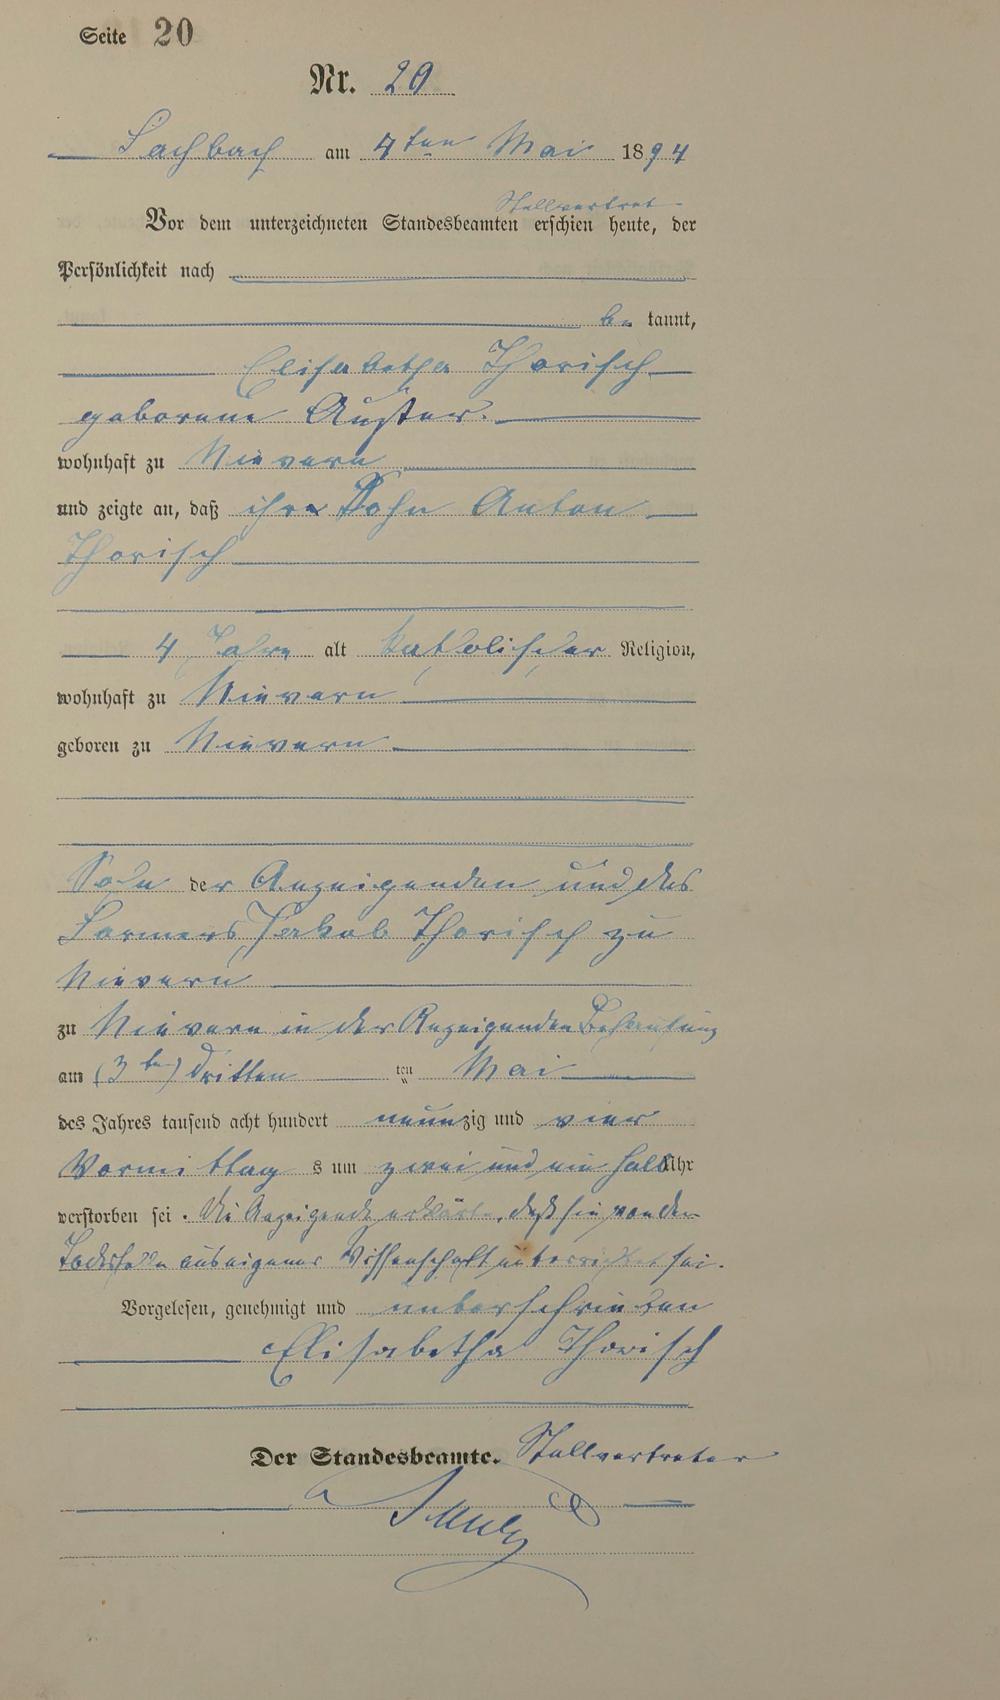 Seite 20
Nr. 20
Fachbach am 4ten Mai 1894
Stellvertret
Vor dem unterzeichneten Standesbeamten erschien heute, der
Persönlichkeit nach
be kannt,
Elisabetha Thorisch
geborene Auster.
wohnhaft zu Nievern
und zeigte an, daß ihr Sohn Anton
Thorisch
4 Jahre alt katholischer Religion,
wohnhaft zu Nievern
geboren zu Nievern
Sohn der Anzeigenden und des
Formers Jakob Thorisch zu
Nievern
zu Nievern in der Anzeigenden Behausung
am (3ten) dritten ten Mai
des Jahres tausend acht hundert neunzig und vier
Vormittag s um zwei und ein halb Uhr
verstorben sei. Die Anzeigende erklärte, daß sie von dem
Todesfalle aus eigener Wissenschaft unterrichtet sei.
Vorgelesen, genehmigt und unterschrieben
Elisabetha Thorisch
Der Standesbeamte. Stellvertreter